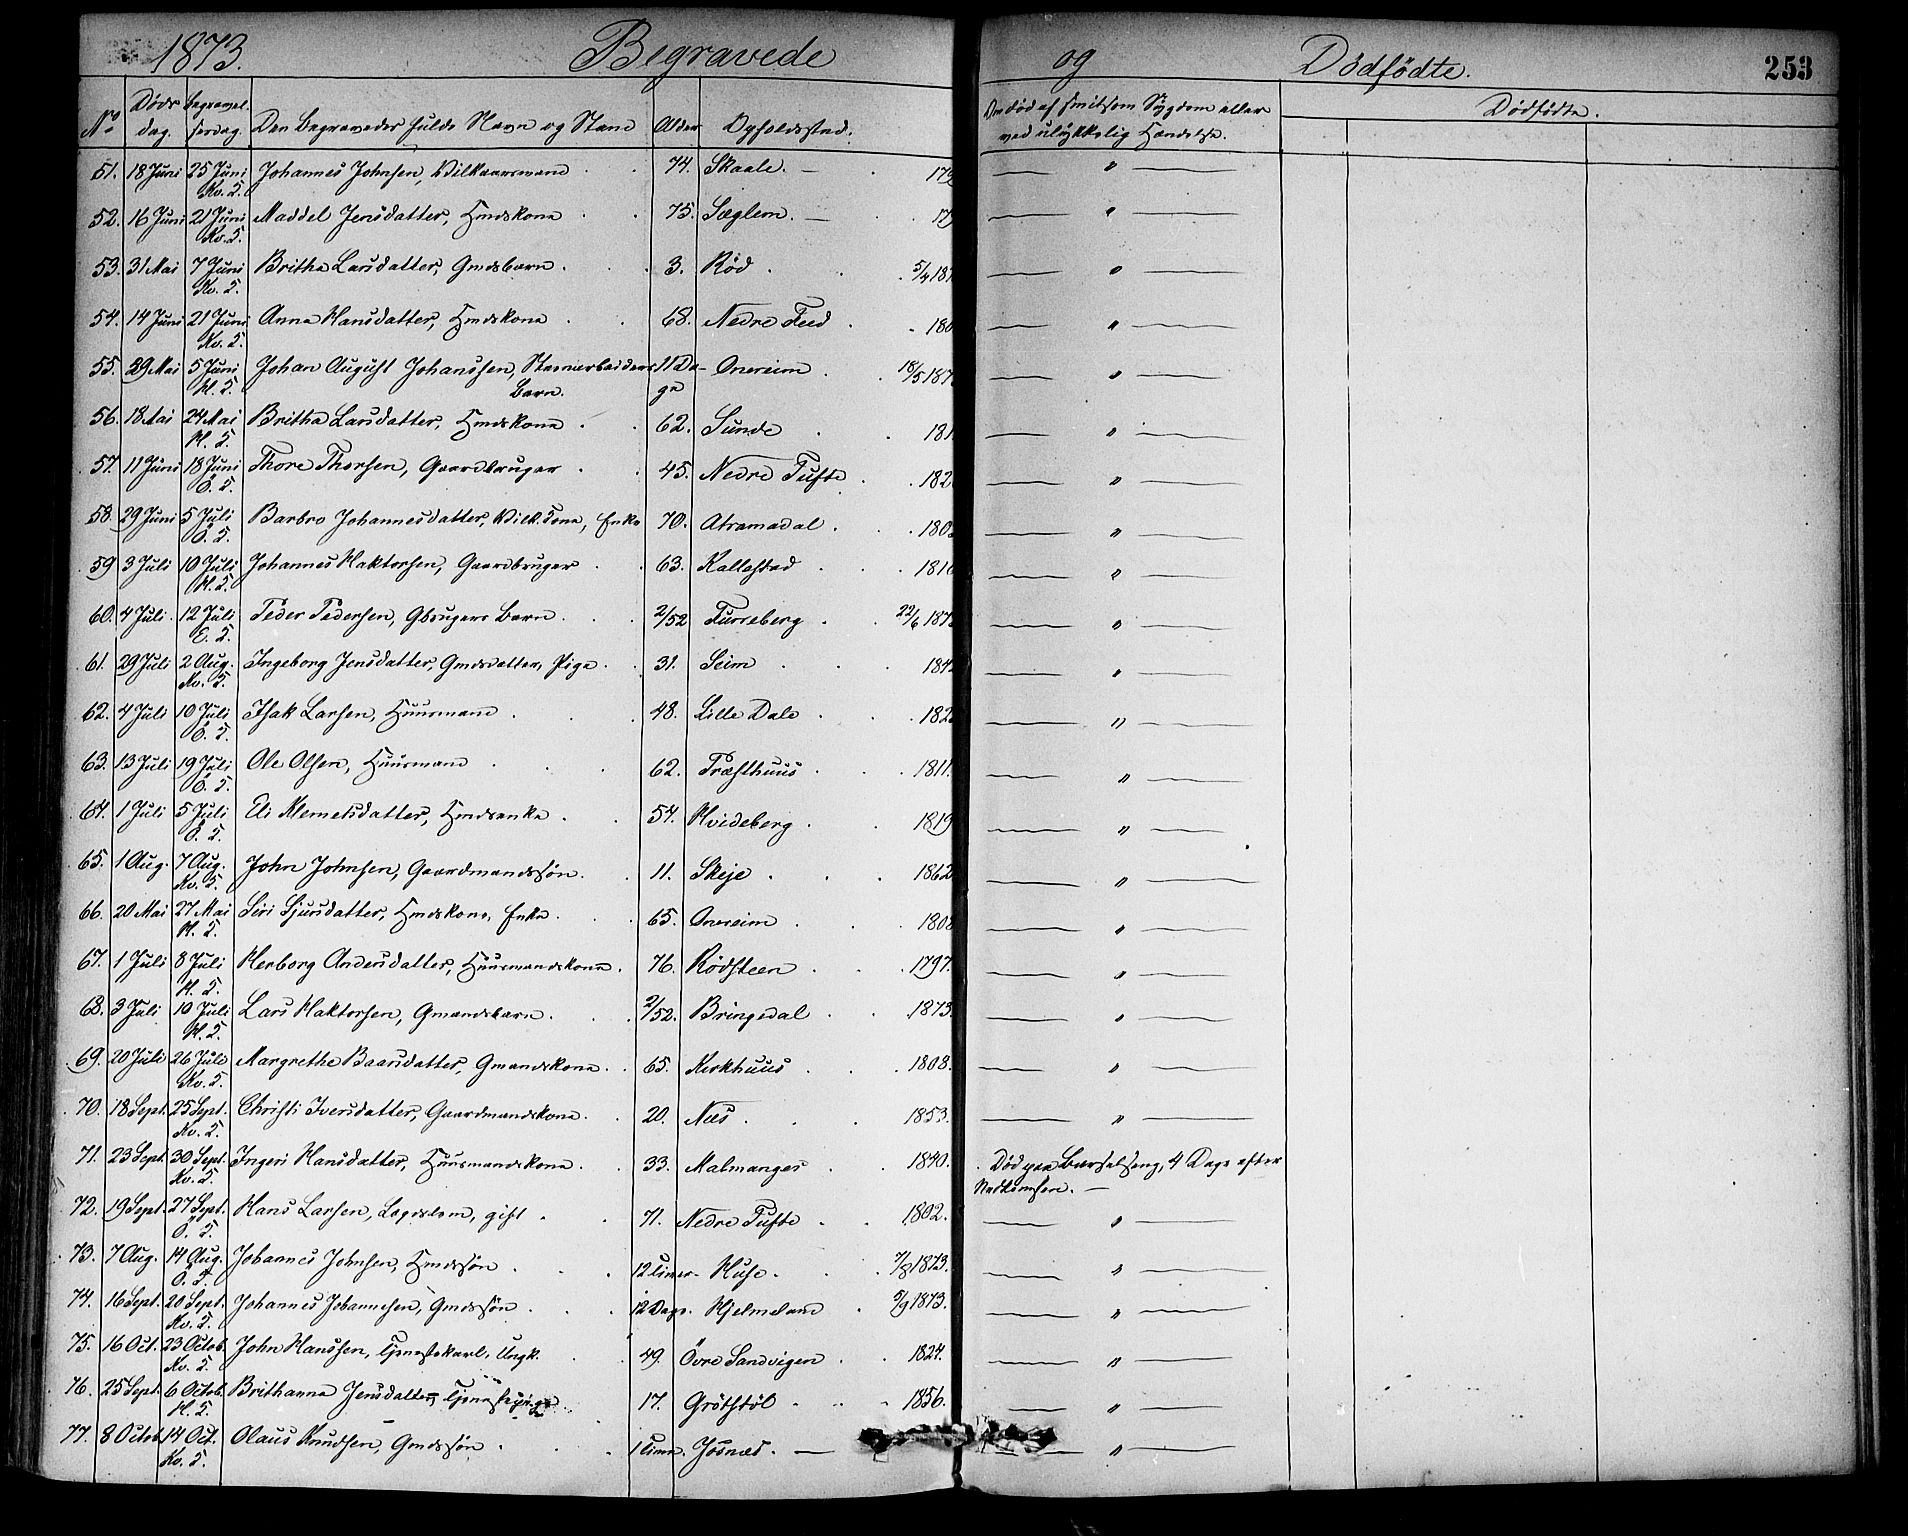 1873. Begravede og Dødfødte. 253
No Døds dag. Begravel. sesdag. Den Begravedes fulde Navn og Stand Alder Opholdssted. Om død af smitsom Sygdom eller ved ulykkelig Hændelse. Dødfødte.
51. 18 Juni 25 Juni Johannes Johnsen, Vilkaarsmand 74. Skaale. — "
Kv. S.
52. 16 Juni 21 Juni Maddel Jensdatter, Hmdskone 75. Sæglem. — "
Kv. S.
53. 31 Mai 7 Juni Britha Larsdatter, Gmdsbarn. 3. Rød. 5/4 187 "
Kv. S.
54. 14 Juni 21 Juni Anna Hansdatter, Hmdskone 68. Nedre Feed 180 "
Kv. S.
55. 29 Mai 5 Juni Johan August Johanssen, 11 Da- Onereim 18/5 187 "
H. S. Barn. ge
56. 18 Mai 24 Mai Britha Larsdatter, Hmdskone 62. Sunde 181 "
H. S.
57. 11 Juni 18 Juni Thore Thorsen, Gaardbruger 45. Nedre Tufte 182 "
Ö. S.
58. 29 Juni 5 Juli Barbro Johannesdatter, Vilk. Kone, Enke 70. Atramadal. 180 "
Ö. S.
59 3 Juli 10 Juli Johannes Haktorsen, Gaardbruger 63. Kallestad 1810 "
H. S.
60. 4 Juli 12 Juli Peder Pedersen, Gbrugers Barn 2/52 Furreberg 22/6 187 "
E. S.
61. 29 Juli 2 Aug. Ingeborg Jensdatter, Gmdsdatter, Pige 31. Seim 184 "
Kv. S.
62. 4 Juli 10 Juli Isak Larsen, Huusmand 48. Lille Dale 182 "
Ö. S.
63. 13 Juli 19 Juli Ole Olsen, Huusmand 62. Præsthuus 1811. "
Ö. S.
64. 1 Juli 5 Juli Eli Klemetsdatter, Hmdsenke 54. Hvideberg 1819 "
Ö. S.
65. 1 Aug. 7 Aug. John Johnsen, Gaardmandssøn. 11. Skeje 1862 "
Kv. S.
66. 20 Mai 27 Mai Siri Sjursdatter, Hmdskone, Enke 65. Onereim 1808 "
H. S.
67. 1 Juli 8 Juli Herborg Andersdatter, Huusmandskone 76. Rødsteen 1797. "
H. S.
68. 3 Juli 10 Juli Lars Haktorsen, Gmandsbarn 2/52. Bringedal 1873. "
H. S.
69. 20 Juli 26 Juli Margrethe Baarsdatter, Gmandskone 65. Kirkhuus 1808. "
Kv. S.
70. 18 Sept. 25 Sept. Christi Iversdatter, Gaardmandskone 20. Næs. 1853. "
Kv. S.
71. 23 Sept. 30 Sept. Ingeri Hansdatter, Huusmandskone 33. Malmanger 1840. Død paa Barselseng, 4 Dage efter
Kv. S. Nedkomsten. —
72. 19 Sept. 27 Sept. Hans Larsen, Lægdslem, gift 71. Nedre Tufte 1802. "
Ö. S.
73. 7 Aug. 14 Aug. Johannes Johnsen, Hmdssøn 12 timer Huse. 7/8 1873. "
Ö. S.
74. 16 Sept. 20 Sept. Johannes Johannesen, Gmdssøn 12 Dage. Hjelmeland 5/9 1873. "
Kv. S.
75. 16 Oct. 23 Octob. John Hanssen, tjenestekarl, Ungk. 49. Övre Sandvigen 1824. "
Kv. S.
76. 25 Sept. 6 Octob. Brithanna Jensdatter, tjenestepige 17. Grötstöl 1856. "
H. S.
77. 8 Octob. 14 Oct. Olaus Knudsen, Gmdssøn 1 time. Jösnæs. — "
Kv. S.